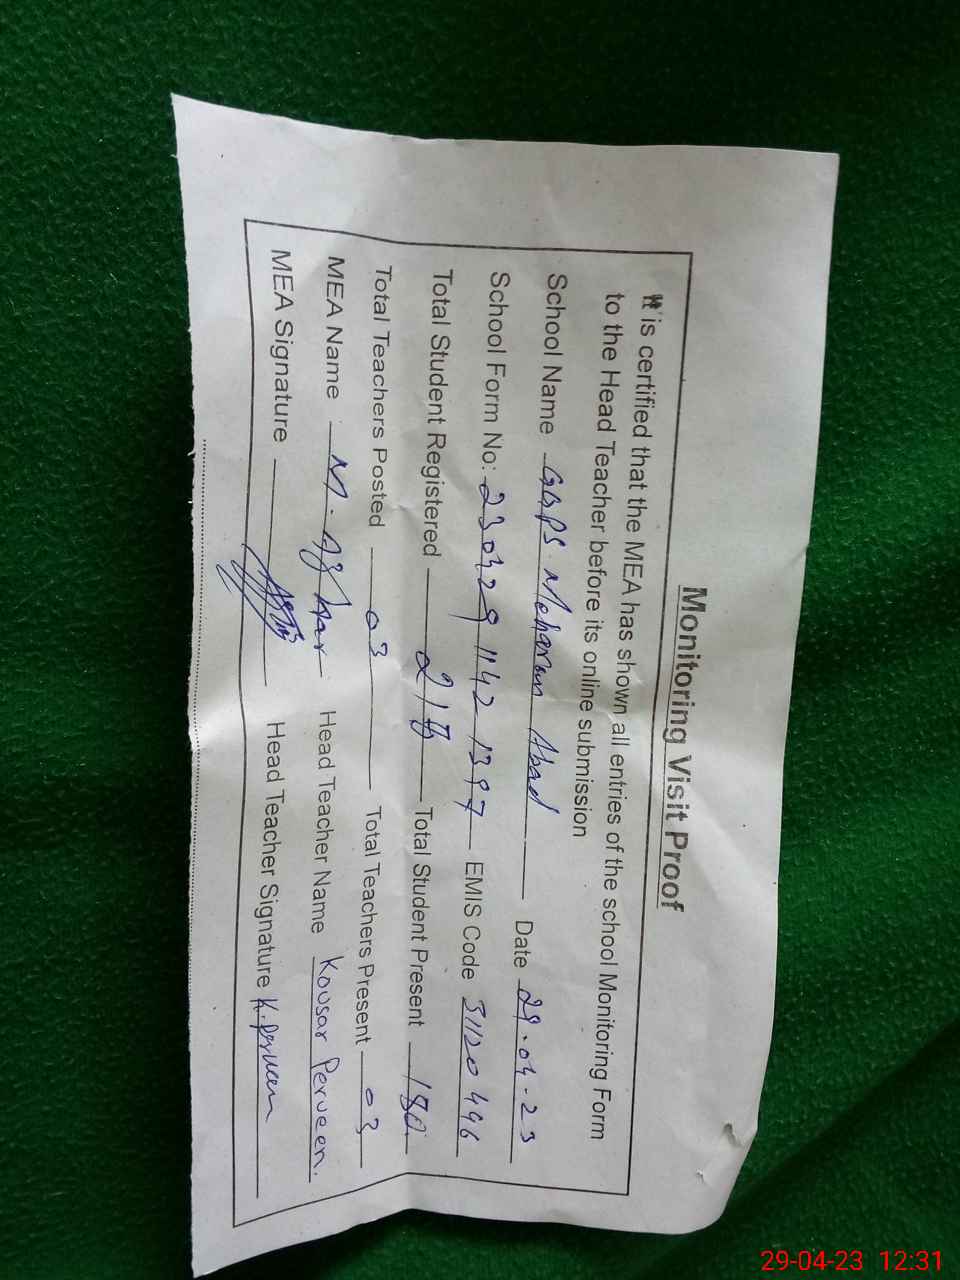 Monitoring Visit Proof
It is certified that the MEA has shown all entries of the school Monitoring Form
to the Head Teacher before its online submission
School Name GGPS Meharan Abad Date 29.04.23
School Form No: 230429 1142 1397 EMIS Code 31120496
Total Student Registered Total Student Present 180
Total Teachers Posted 03 Total Teachers Present 03
MEA Name M. Azhar Head Teacher Name Kousar Perveen.
MEA Signature Head Teacher Signature K. perveen
29-04-23 12:31